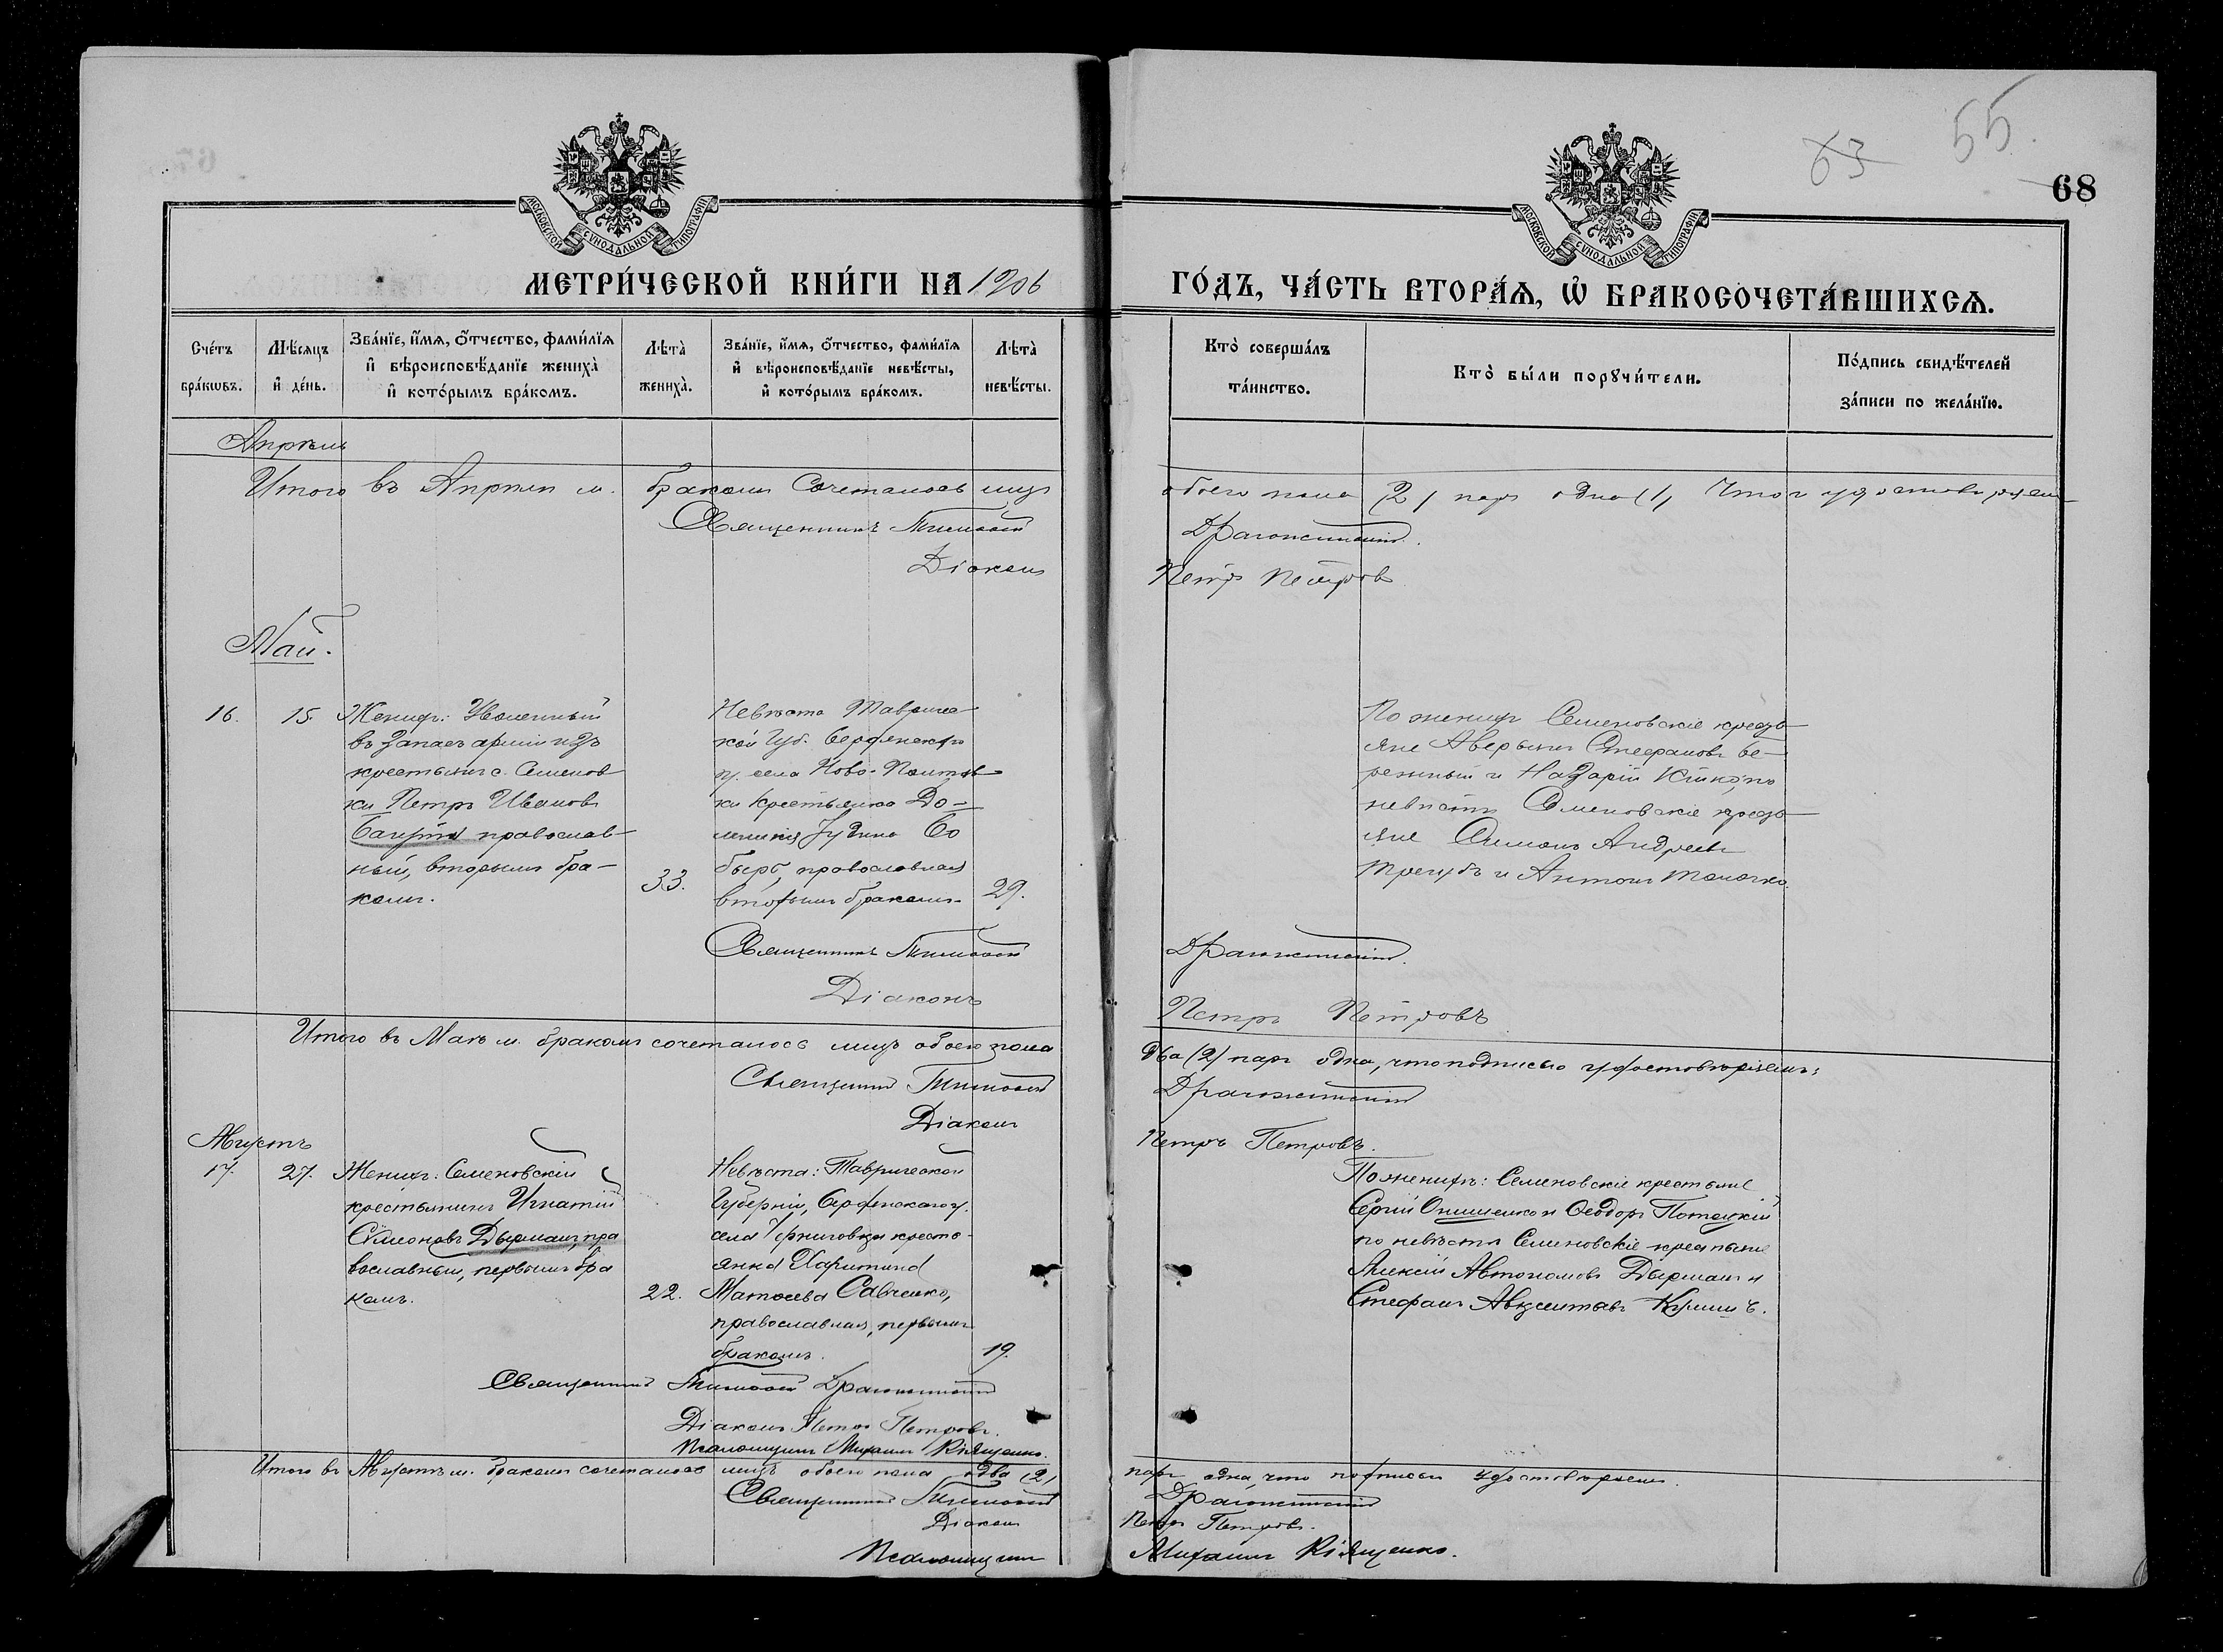 63
55.
68
МОСКОВСКОЙ СУНОДАЛЬНОЙ ТИПОГРАФІИ
МОСКОВСКОЙ СУНОДАЛЬНОЙ ТИПОГРАФІИ
МЕТРИ́ЧЕСКОЙ КНИ́ГИ НА 1906
ГО́ДЪ, ЧА́СТЬ ВТОРА́Ѧ, Ѡ҆ БРАКОСОЧЕТА́ВШИХСѦ.
Сче́тъ
бра́кѡвъ.
Мѣ́сѧцъ
и҆ де́нь.
Зва́нїе, и҆́мѧ, ѻ҆́тчество, фами́лїѧ
и҆ вѣроисповѣ́данїе жениха̀
и҆ кото́рымъ бра́комъ.
Лѣта̀
жениха̀.
Зва́нїе, и҆́мѧ, ѻ҆́тчество, фами́лїѧ
и҆ вѣроисповѣ́данїе невѣ́сты,
и҆ кото́рымъ бра́комъ.
Лѣта̀
невѣ́сты.
Кто̀ соверша́лъ
та́инство.
Кто̀ бы́ли порꙋчи́тели.
По́дпись свидѣ́телей
за́писи по жела́нїю.
Апрѣль
Итого въ Апрѣлѣ м. бракомъ сочеталось лицъ
обоего пола (2) паръ одна (1)
Священникъ Тимоѳей
Драгожинскій
Діаконъ
Петръ Петровъ
Май.
16.
15.
Женихъ: Уволенный
въ запасъ арміи изъ
крестьянъ с. Семенов
ки Петръ Ивановъ
православ-
ный, вторымъ бра-
комъ.
33.
Невѣста Тавричес
кой Губ. Бердянскаго
у. села Ново-Полтав-
ки крестьянка До-
православная
вторымъ бракомъ.
29.
По женихѣ Семеновскіе кресть-
яне Аверьянъ Стефановъ Бе-
режный и Назарій по
невѣстѣ Семеновскіе кресть-
яне Симонъ Андреевъ
и Антонъ
Священникъ Тимоѳей
Драгожинскій.
Діаконъ
Петръ Петровъ
Итого въ Маѣ м. бракомъ сочеталось лицъ обоего пола
два (2) паръ одна, что подписью удостовѣряемъ:
Священникъ Тимоѳей
Драгожинскій
Діаконъ
Петръ Петровъ.
Августъ
17.
27.
Женихъ: Семеновскій
крестьянинъ Игнатій
Симоновъ Дырманъ, пра
вославный, первымъ бра
комъ.
22.
Невѣста: Таврической
Губерніи, Бердянскаго у.
села Черниговки кресть-
янка Харитина
Матѳеева Савченко,
православная, первымъ
бракомъ.
19.
По женихѣ: Семеновскіе крестьяне
Сергій Онищенко и Ѳеодоръ
по невѣстѣ Семеновскіе крестьяне
Алексій Автономовъ Дырманъ и
Стефанъ Авксентіевъ
Священникъ Тимоѳей Драгожинскій
Діаконъ Петръ Петровъ.
Псаломщикъ Михаилъ Кіященко.
Итого въ Августѣ м. бракомъ сочеталось лицъ обоего пола два (2)
паръ одна, что подписью удостовѣряемъ.
Священникъ Тимоѳей
Драгожинскій
Діаконъ
Петръ Петровъ.
Псаломщикъ
Михаилъ Кіященко.